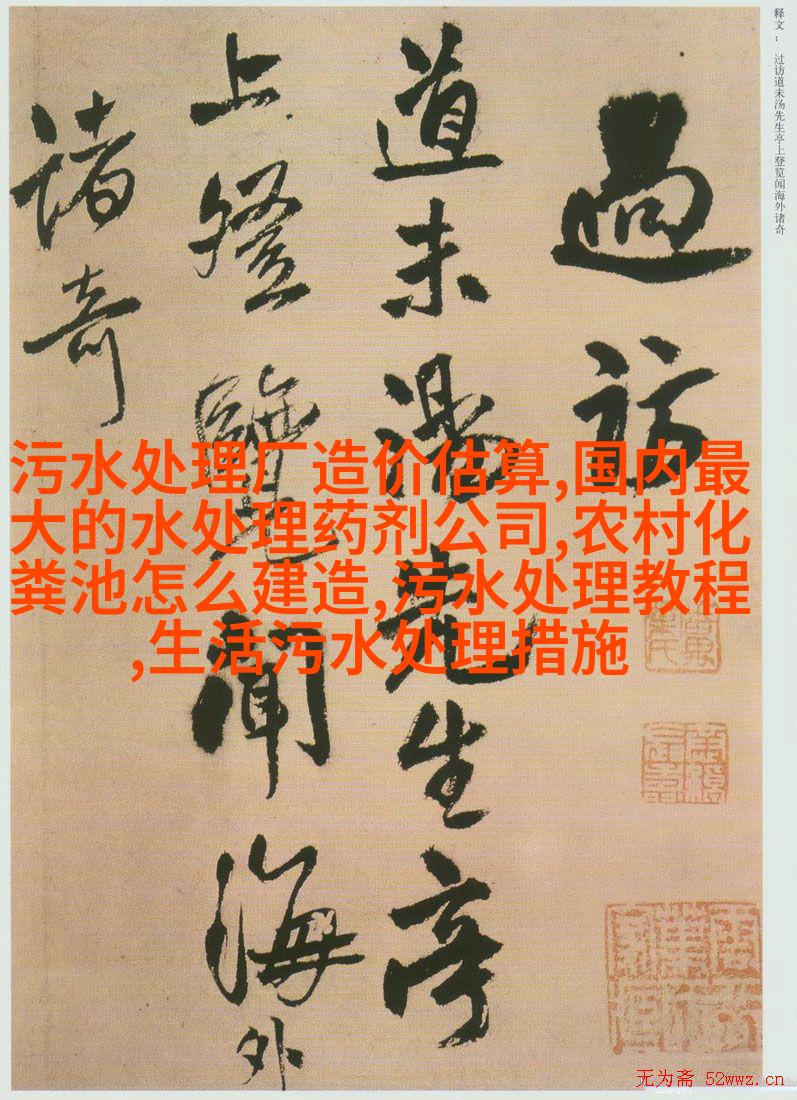 过访
道未汤先生亭
上登览闻海外
诸奇
释文： 过访道未汤先生亭上登览闻海外诸奇
污水处理厂造价估算,国内最
大的水处理药剂公司,农村化
粪池怎么建造,污水处理教程
,生活污水处理措施
无为斋 52wwz.cn